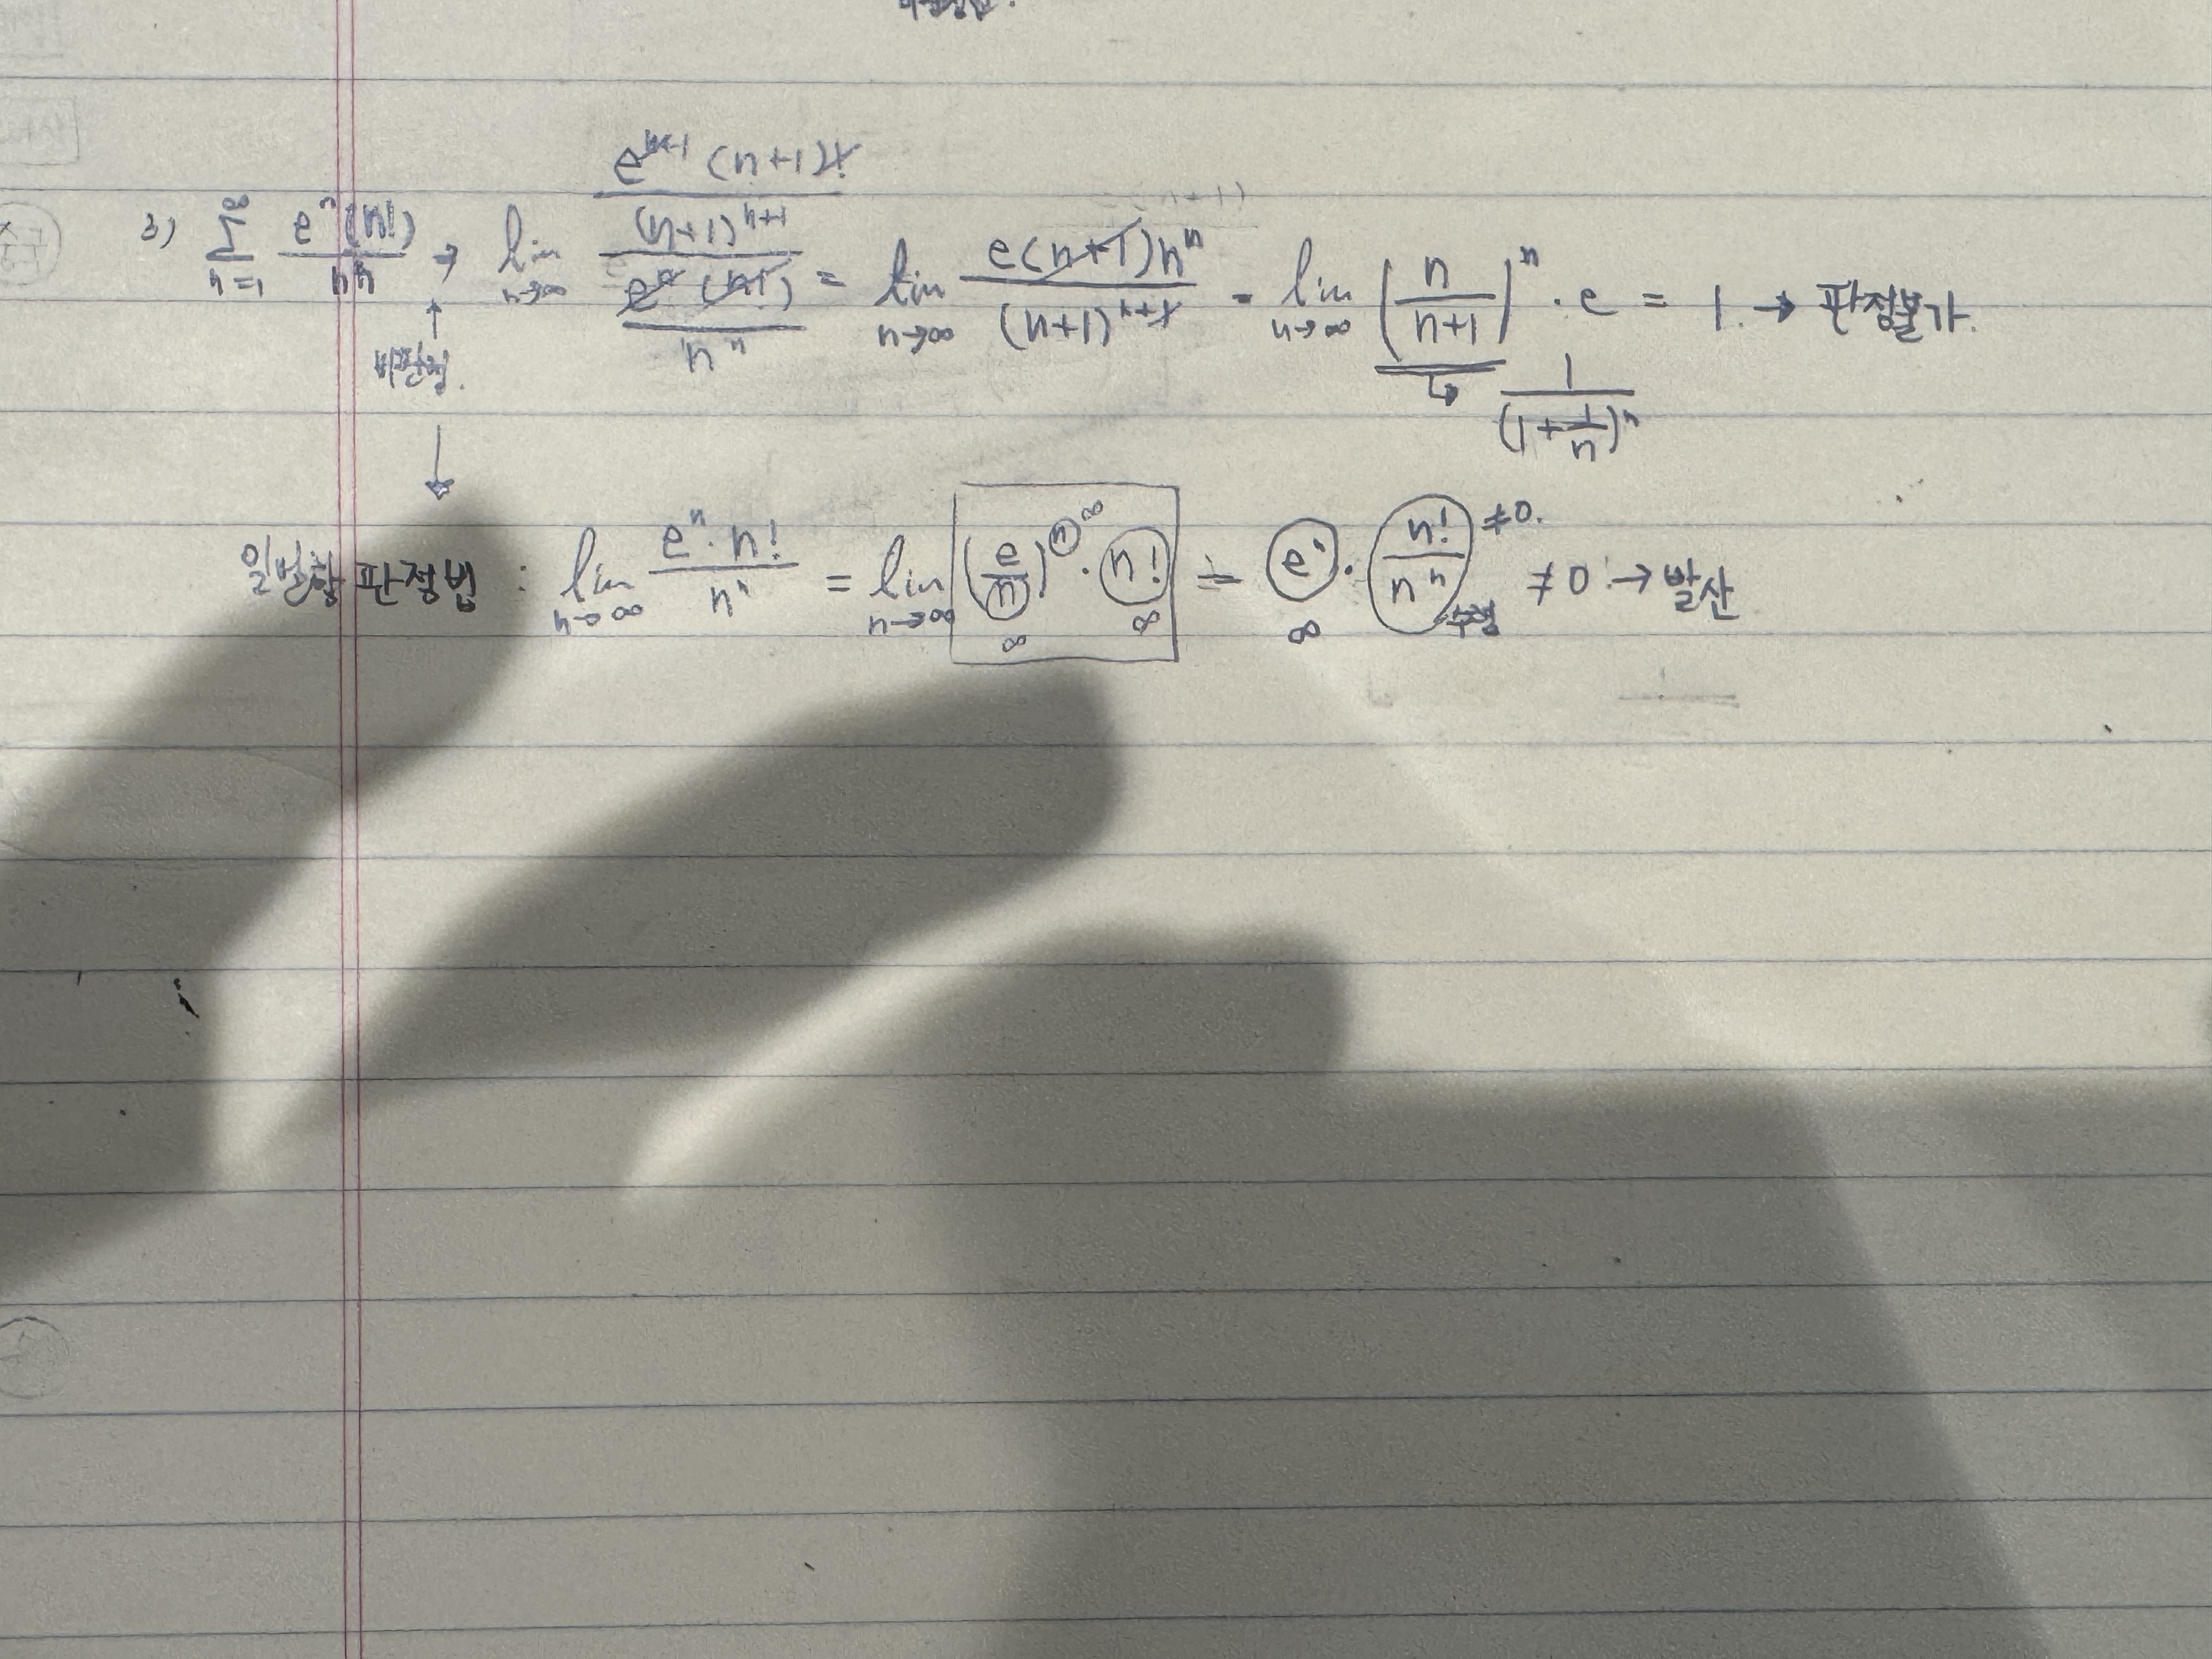 3) \sum_{n=1}^{∞} \frac{e^n (n!)}{n^n} → \lim_{n→∞} \frac{\frac{e^{n+1} (n+1)!}{(n+1)^{n+1}}}{\frac{e^n (n!)}{n^n}} = \lim_{n→∞} \frac{e(n+1)n^n}{(n+1)^{n+1}} = \lim_{n→∞} \left(\frac{n}{n+1}\right)^n · e = 1. → 판정불가.
↑ 비판정. ↓
↳ \frac{1}{(1+\frac{1}{n})^n}
일반항 판정법 : \lim_{n→∞} \frac{e^n · n!}{n^n} = \lim_{n→∞} \left(\frac{e}{n}\right)^n · n! = e^n · \frac{n!}{n^n} ≠ 0 → 발산
∞ ∞ ∞ ∞ 수렴 ≠0.